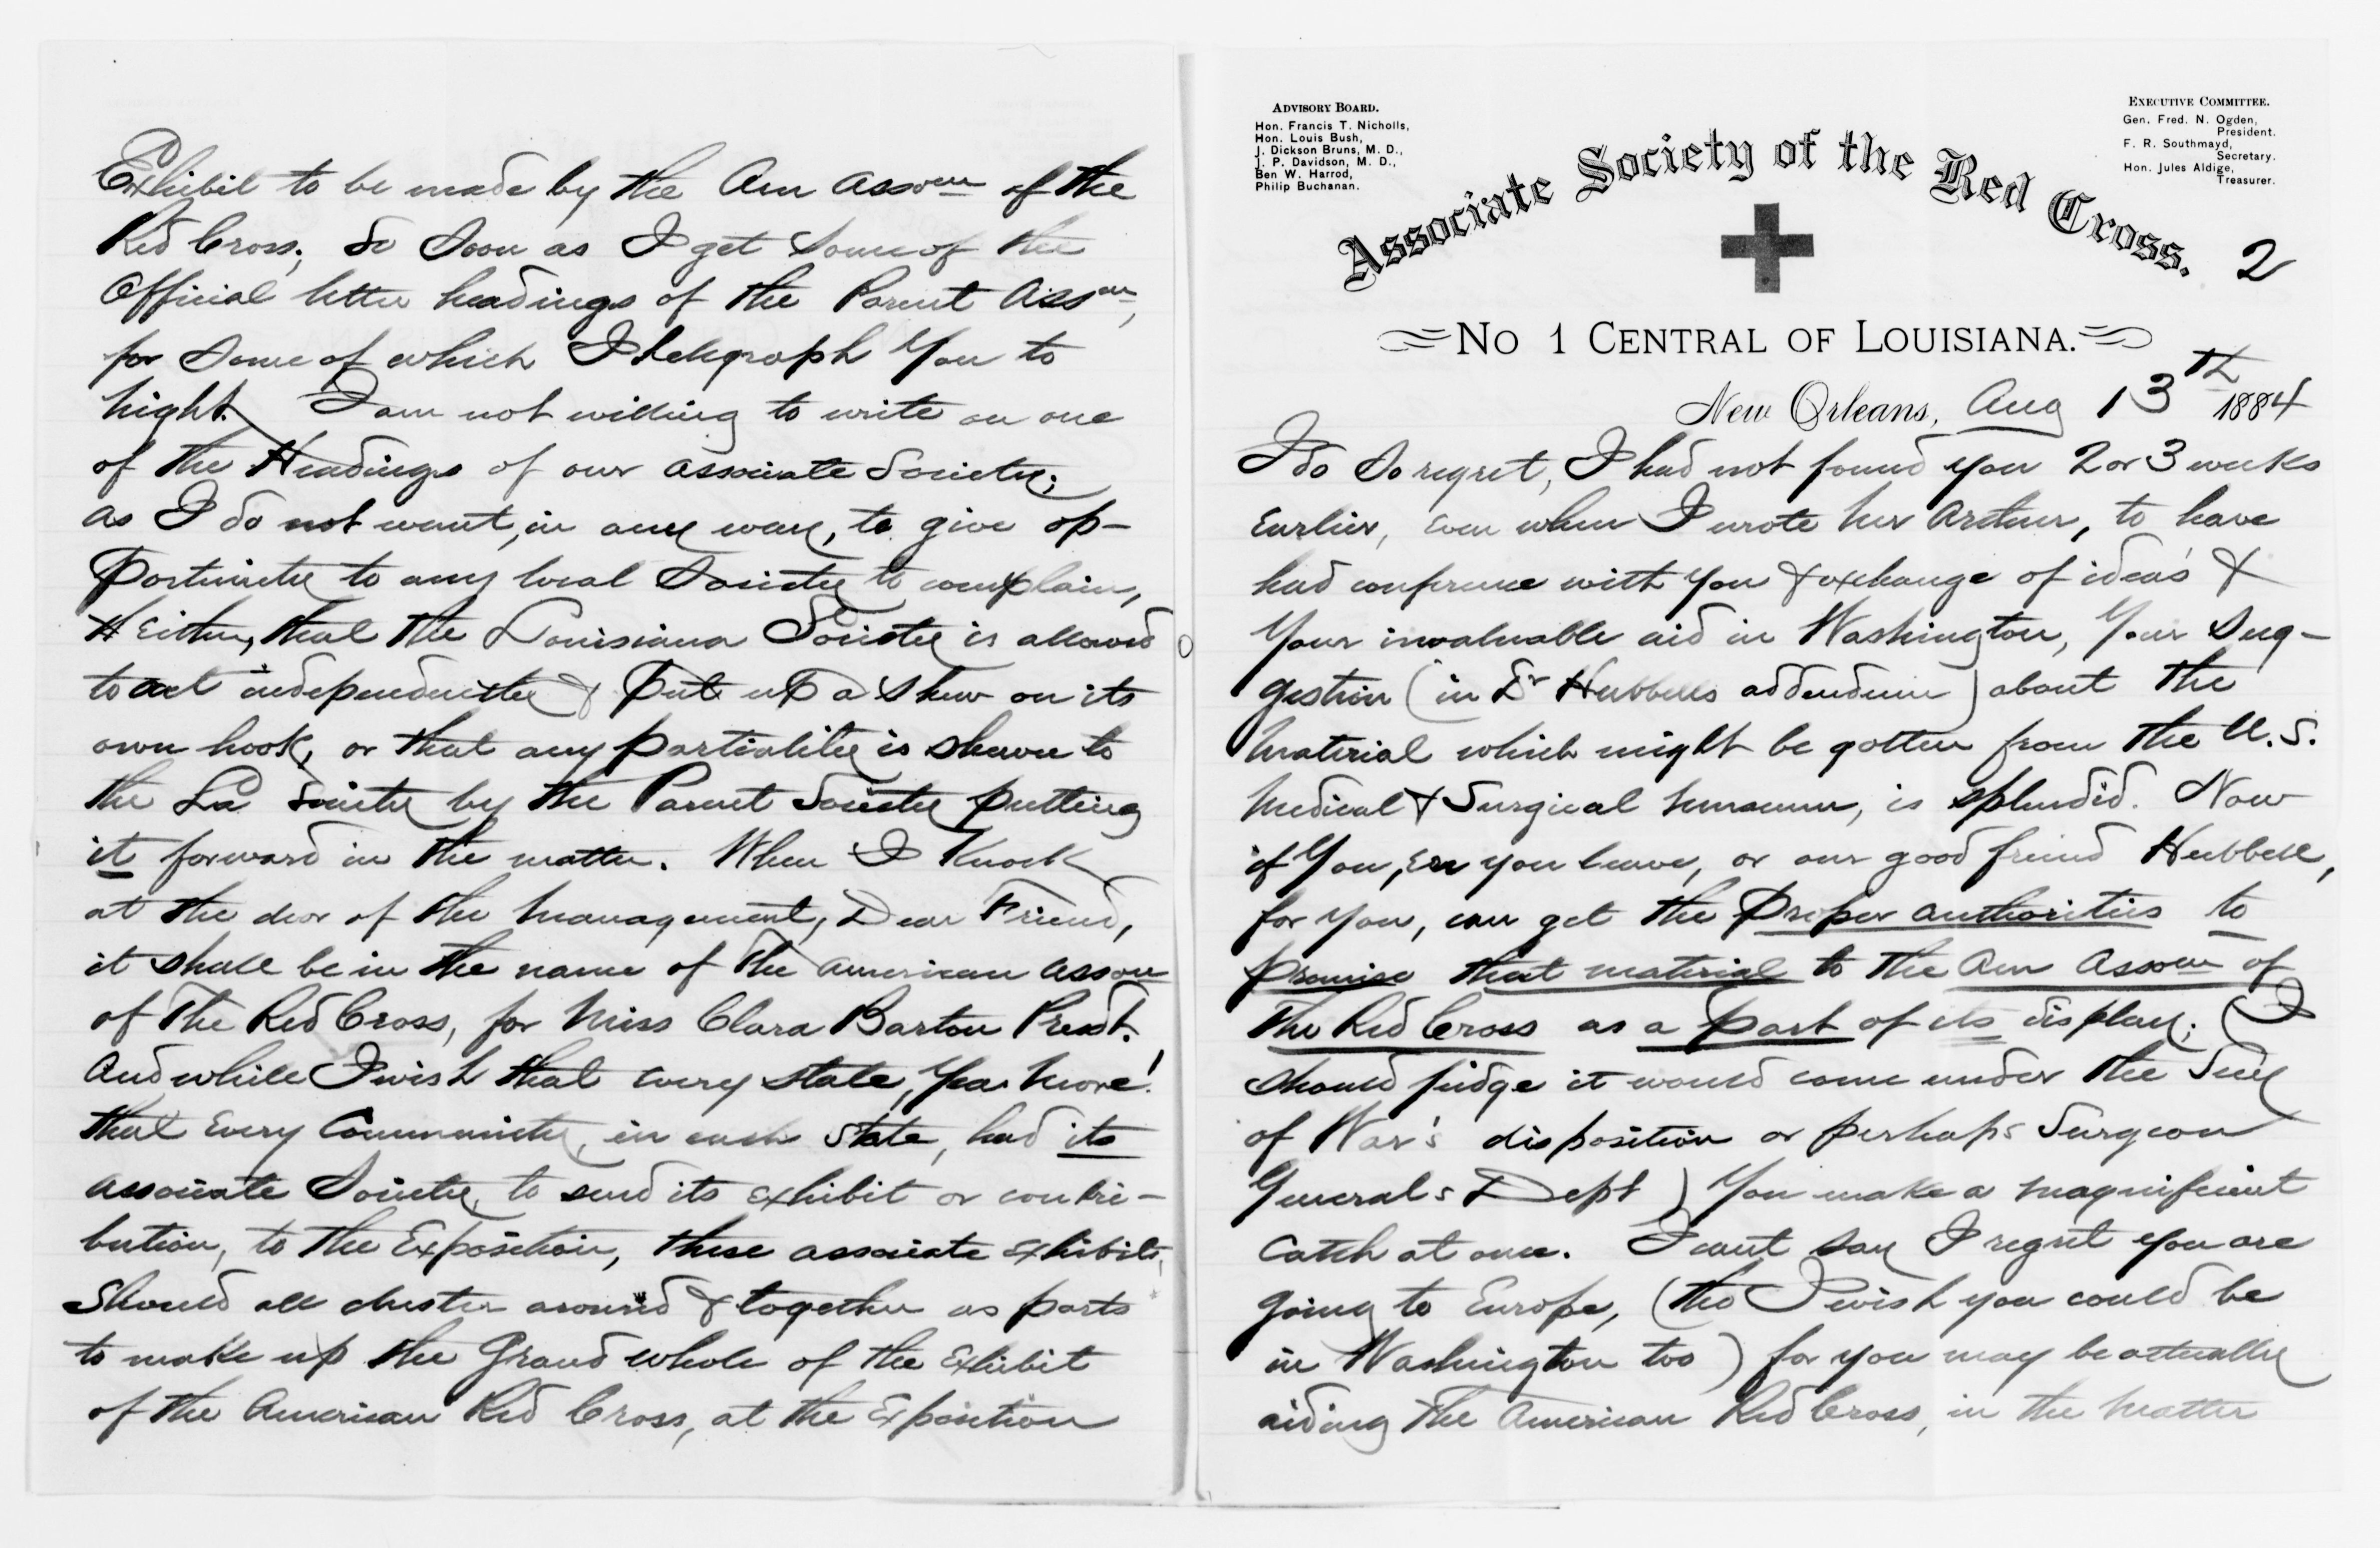 Exhibit to be made by the Am Assocn of the
Red Cross; So Soon as I get Some of the
Official letter headings of the Parent Assn,
for Some of which I telegraph You to
night. I am not willing to write on one
of the Headings of our Associate Society;
as I do not want, in any way, to give op-
portunity to any local Society to complain,
Either, that the Louisiana Society is allowed
to act independently & Put up a Show on its
own hook, or that any partiality is shown to
the La Society by the Parent Society putting
it forward in the matter. When I Knock
at the door of the Management, Dear Friend,
it shall be in the name of The American Assocn
of The Red Cross, for Miss Clara Barton Presdt.
And while I wish that every State, Yea More!
that Every Community, in each State, had its
Associate Society, to send its exhibit or contri-
bution, to the Exposition, these associate exhibits,
Should all cluster around & together as parts
to make up the Grand whole of the Exhibit
of the American Red Cross, at the Exposition
Advisory Board.
Hon. Francis T. Nicholls,
Hon. Louis Bush,
J. Dickson Bruns, M. D.,
J. P. Davidson, M. D.,
Ben W. Harrod,
Philip Buchanan.
Executive Committee.
Gen. Fred. N. Ogden,
President.
F. R. Southmayd,
Secretary.
Hon. Jules Aldige,
Treasurer.
Associate Society of the Red Cross.
2
No 1 Central of Louisiana.
New Orleans, Aug 13th 1884
I do So regret, I had not found you 2 or 3 weeks
Earlier, Even when I wrote her, to have
had conference with you & exchange of ideas &
Your invaluable aid in Washington, Your Sug-
gestion (in Dr Hubbells addendum) about the
Material which might be gotten from the U. S.
Medical & Surgical Museum, is splendid. Now
if You, Ere you leave, or our good friend Hubbell,
for You, can get the Proper authorities to
promise that material to the Am Assocn of
The Red Cross as a Part of its display; (I
should judge it would come under the Secy
of War's disposition or perhaps Surgeon
Generals Dept) You make a magnificent
Catch at once. I cant say I regret you are
going to Europe, (tho I wish you could be
in Washington too) for you may be actually
aiding The American Red Cross, in the Matter